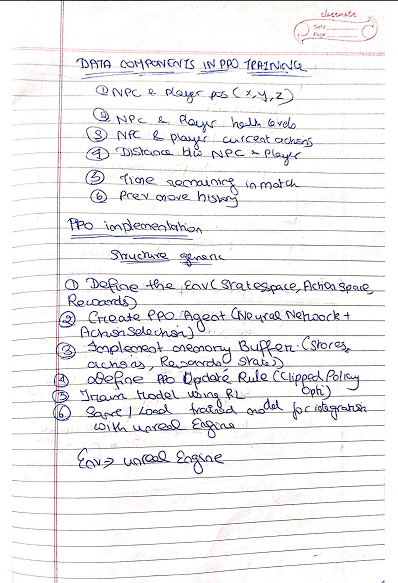 classmate
Date
Page
DATA COMPONENTS IN PPO TRAINING
① NPC & player pos (x,y,z)
② NPC & Player health levels
③ NPC & player current actions
④ Distance b/w NPC & Player
⑤ Time remaining in match
⑥ Prev move history
PPO implementation
Structure generic
① Define the Env (Statespace, Action Space,
Rewards)
② Create PPO Agent (Neural Network +
Action Selection)
③ Implement memory Buffer. (Stores,
actions, Rewards states)
④ Define PPO Update Rule (Clipped Policy
Opti)
⑤ Train Model using RL
⑥ Save / Load trained model for integration
with unreal Engine
Env → unreal Engine